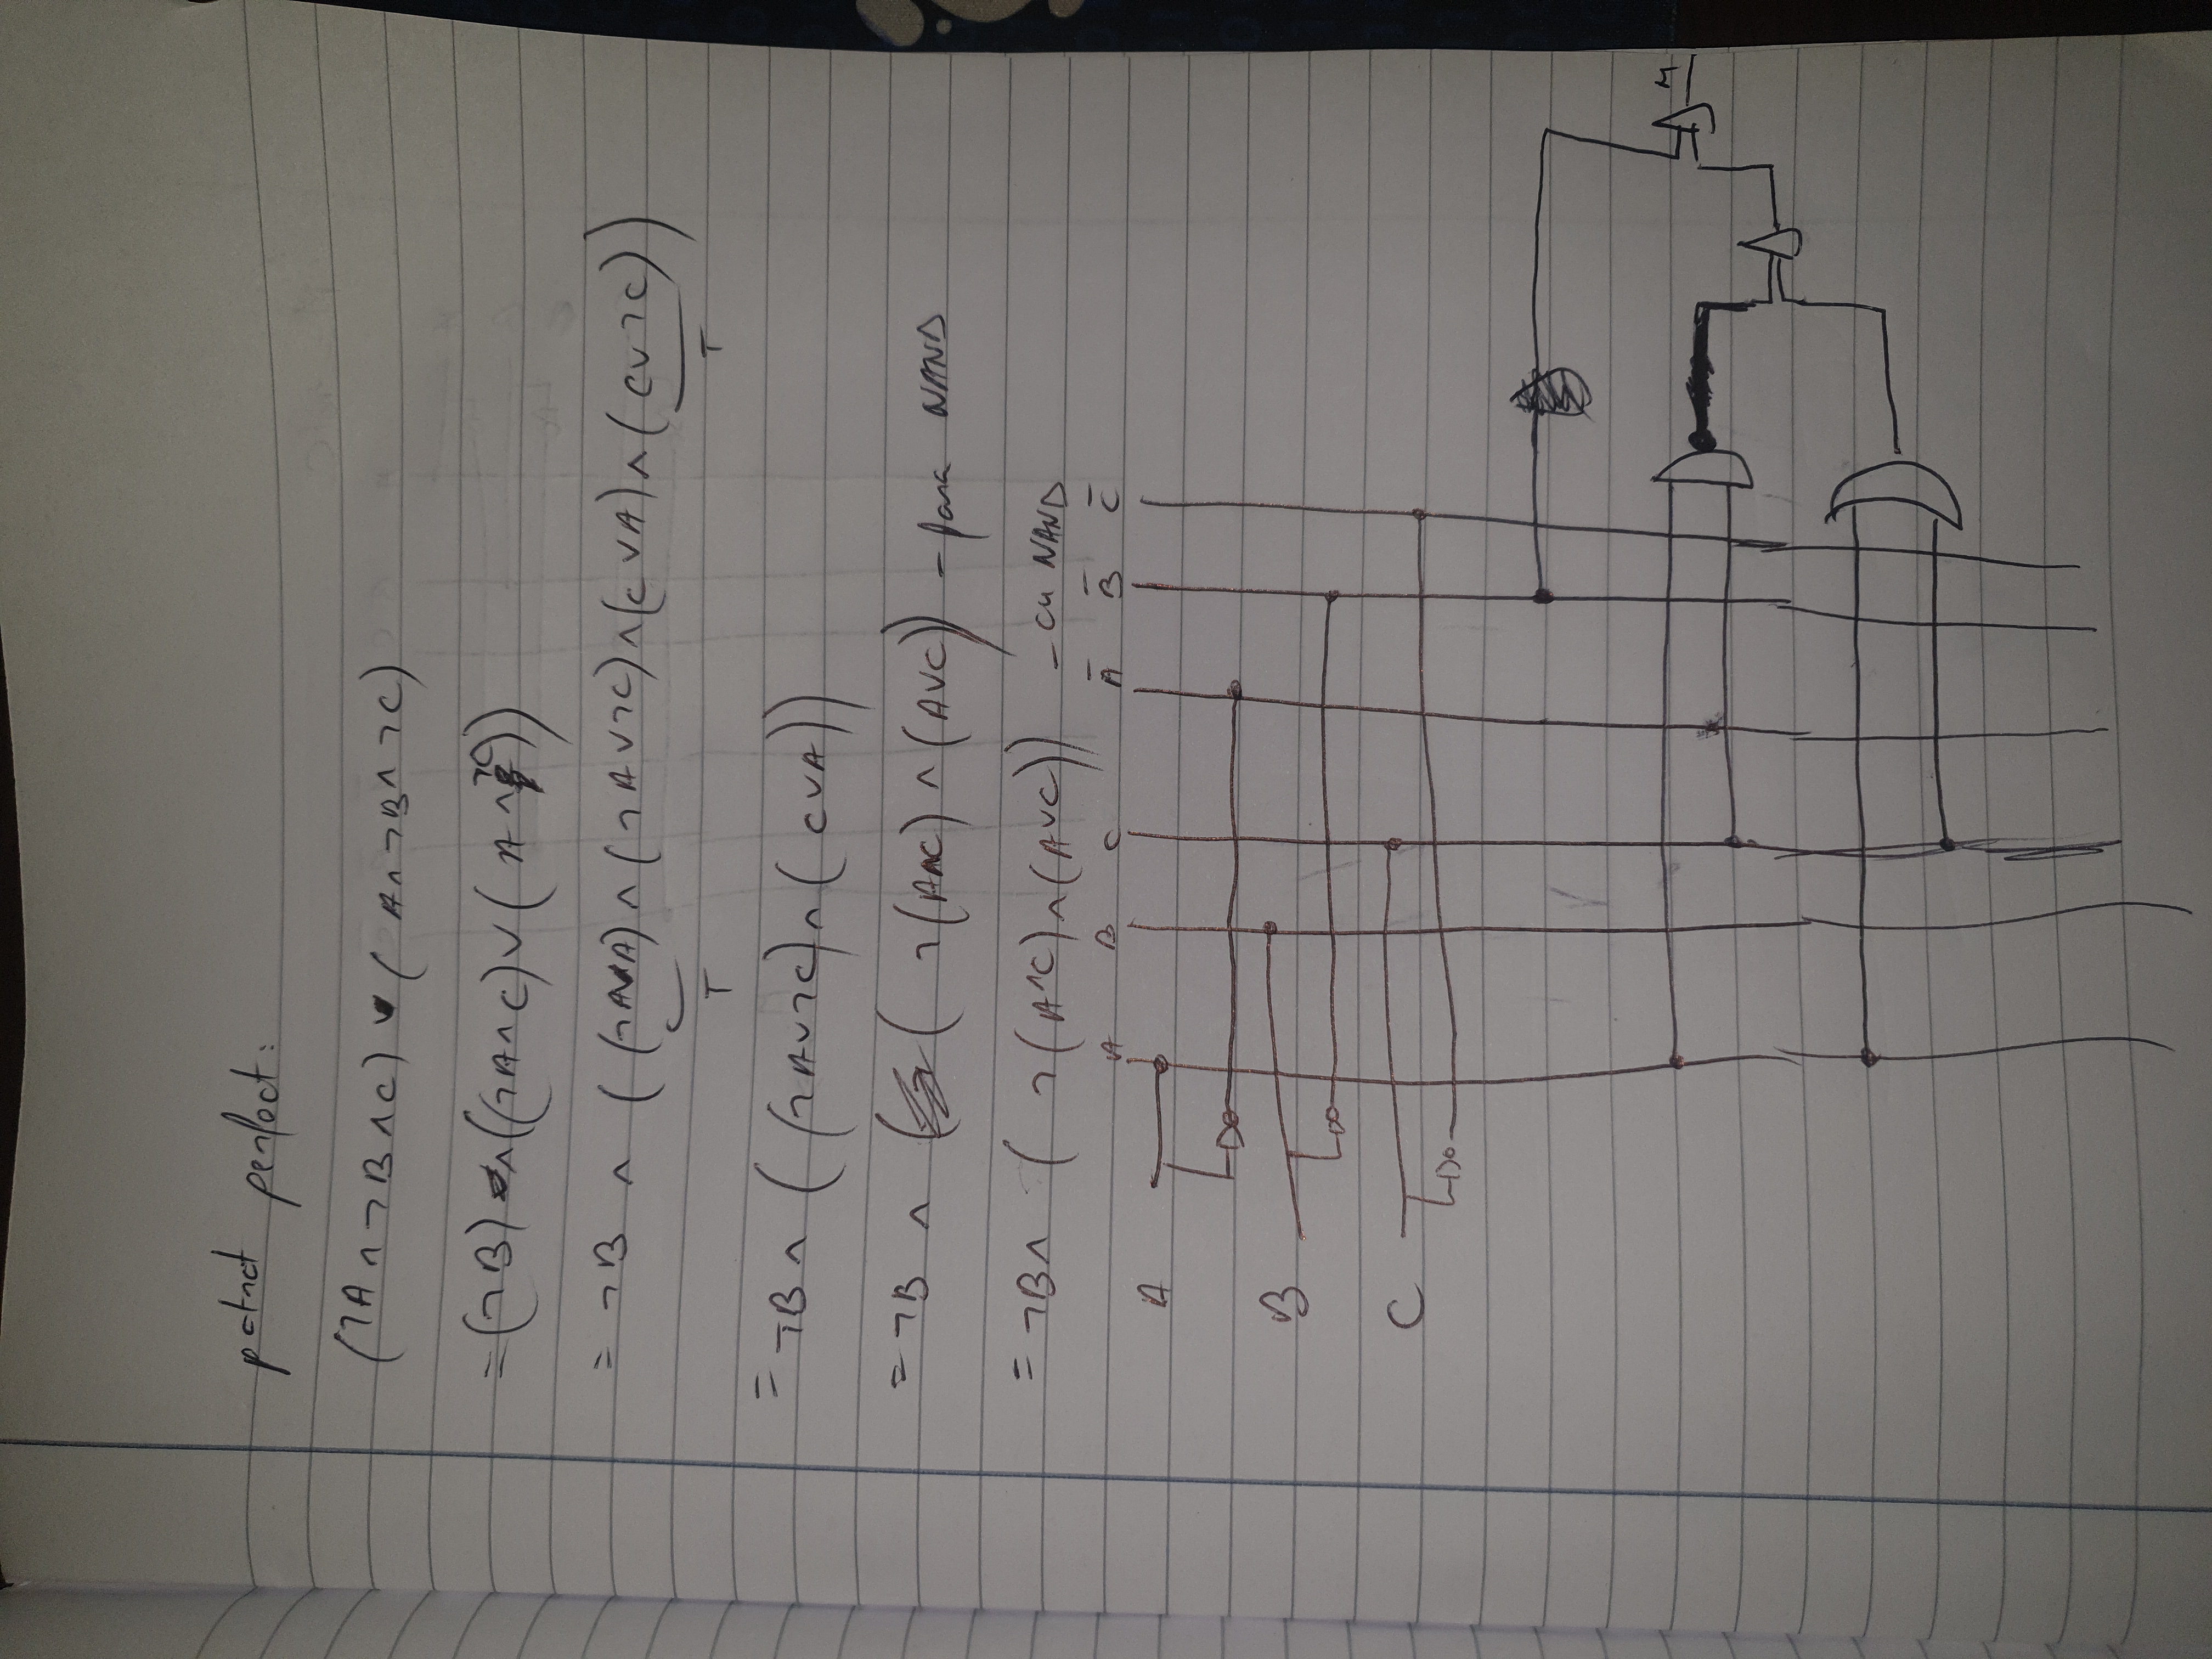 patrat perfect:
(¬A∧¬B∧C) ∨ (A∧¬B∧¬C)
=(¬B) ∧((¬A∧C)∨(A∧¬C))
= ¬B ∧ ((¬A∨A)∧(¬A∨¬C)∧(C∨A)∧(C∨¬C))
T T
= ¬B∧ ((¬A∨¬C)∧(C∨A))
= ¬B ∧ (¬(A∧C)∧(A∨C)) - NAND
= ¬B∧ (¬(A∧C)∧(A∨C)) - cu NAND
A B C A̅ B̅ C̅
A
B
C
M